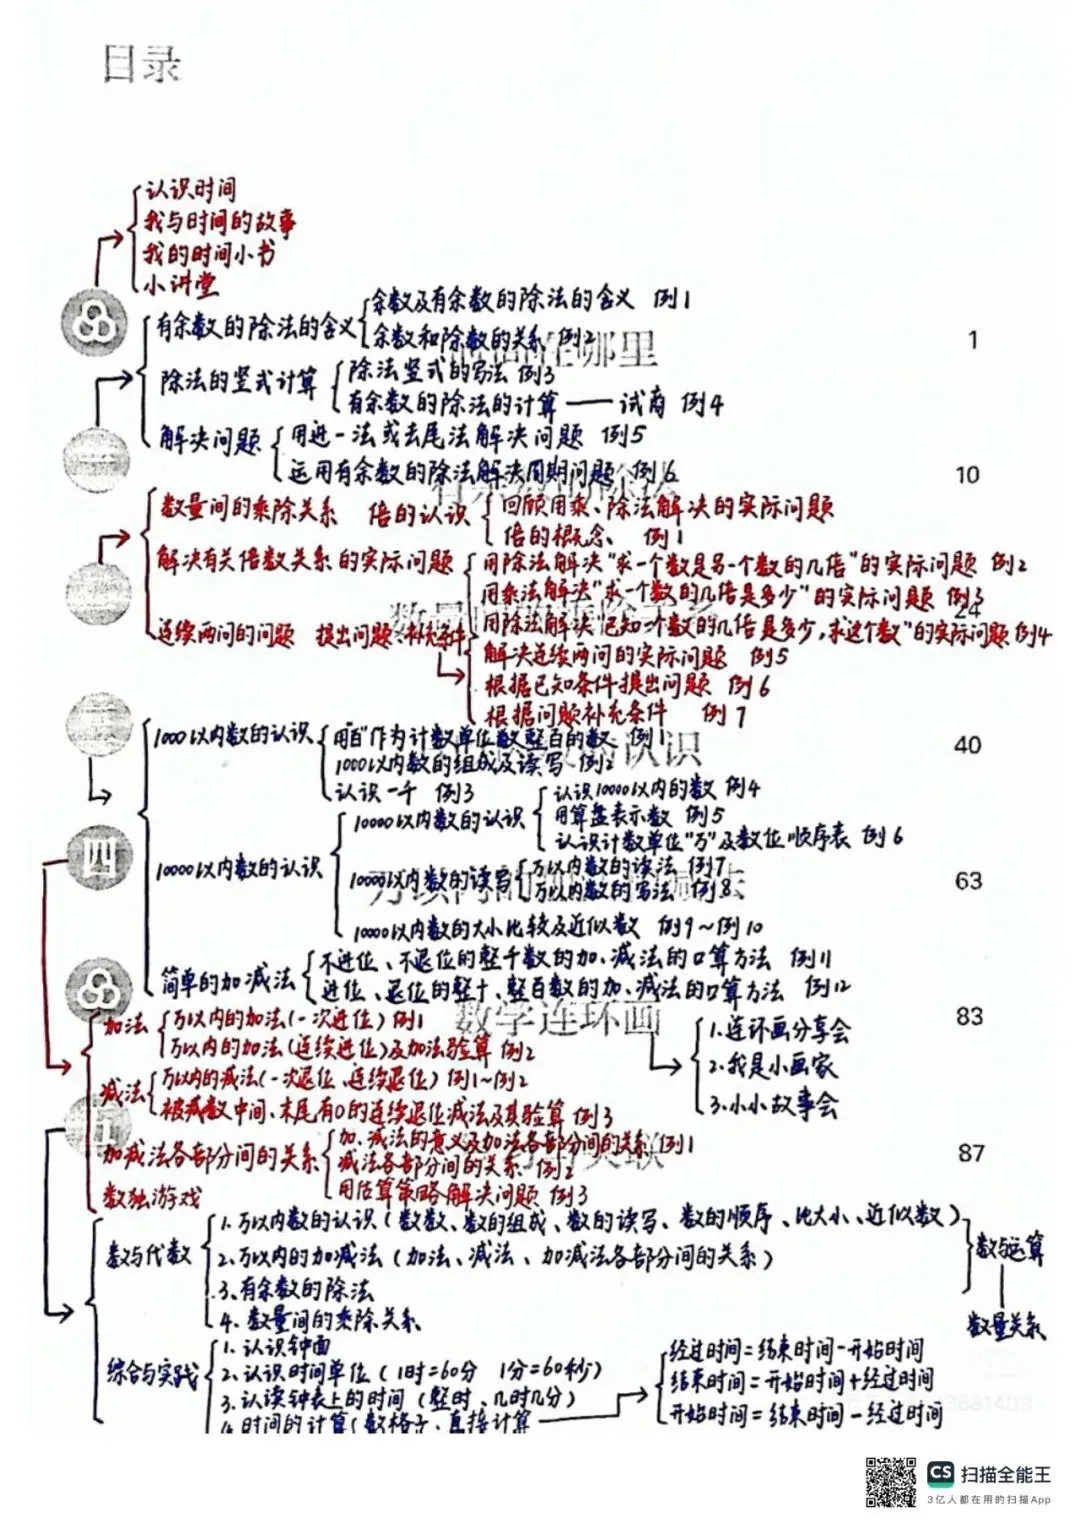 目录
认识时间
我与时间的故事
我的时间小书
小讲堂
有余数的除法的含义 余数及有余数的除法的含义 例1
余数和除数的关系 例2
在哪里 1
除法的竖式计算 除法竖式的写法 例3
有余数的除法的计算——试商 例4
一
解决问题 用进一法或去尾法解决问题 例5
运用有余数的除法解决周期问题 例6
10
数量间的乘除关系 倍的认识 回顾用乘、除法解决的实际问题
倍的概念 例1
二
解决有关倍数关系的实际问题 用除法解决“求一个数是另一个数的几倍”的实际问题 例2
用乘法解决“求一个数的几倍是多少”的实际问题 例3
24
连续两问的问题 提出问题、补充条件 用除法解决“已知一个数的几倍是多少,求这个数”的实际问题 例4
解决连续两问的实际问题 例5
根据已知条件提出问题 例6
根据问题补充条件 例7
三
1000以内数的认识 用“百”作为计数单位数整百的数 例1
1000以内数的组成及读写 例2
认识一千 例3
认识 40
10000以内数的认识 10000以内数的认识 认识10000以内的数 例4
用算盘表示数 例5
认识计数单位“万”及数位顺序表 例6
四
10000以内数的读写 万以内数的读法 例7
万以内数的写法 例8
63
10000以内数的大小比较及近似数 例9~例10
简单的加、减法 不进位、不退位的整千数的加、减法的口算方法 例11
进位、退位的整十、整百数的加、减法的口算方法 例12
数学连环画 83
1.连环画分享会
2.我是小画家
3.小小故事会
加法 万以内的加法(一次进位) 例1
万以内的加法(连续进位)及加法验算 例2
减法 万以内的减法(一次退位、连续退位) 例1~例2
被减数中间、末尾有0的连续退位减法及其验算 例3
五
加减法各部分间的关系 加、减法的意义及加法各部分间的关系 例1
减法各部分间的关系 例2
用估算策略解决问题 例3
87
数独游戏
数与代数 1.万以内数的认识(数数、数的组成、数的读写、数的顺序、比大小、近似数)
2.万以内的加减法(加法、减法、加减法各部分间的关系)
3.有余数的除法
4.数量间的乘除关系
数与运算
数量关系
综合与实践 1.认识钟面
2.认识时间单位(1时=60分 1分=60秒)
3.认读钟表上的时间(整时、几时几分)
4.时间的计算(数格子、直接计算
经过时间=结束时间-开始时间
结束时间=开始时间+经过时间
开始时间=结束时间-经过时间
CS 扫描全能王
3亿人都在用的扫描App